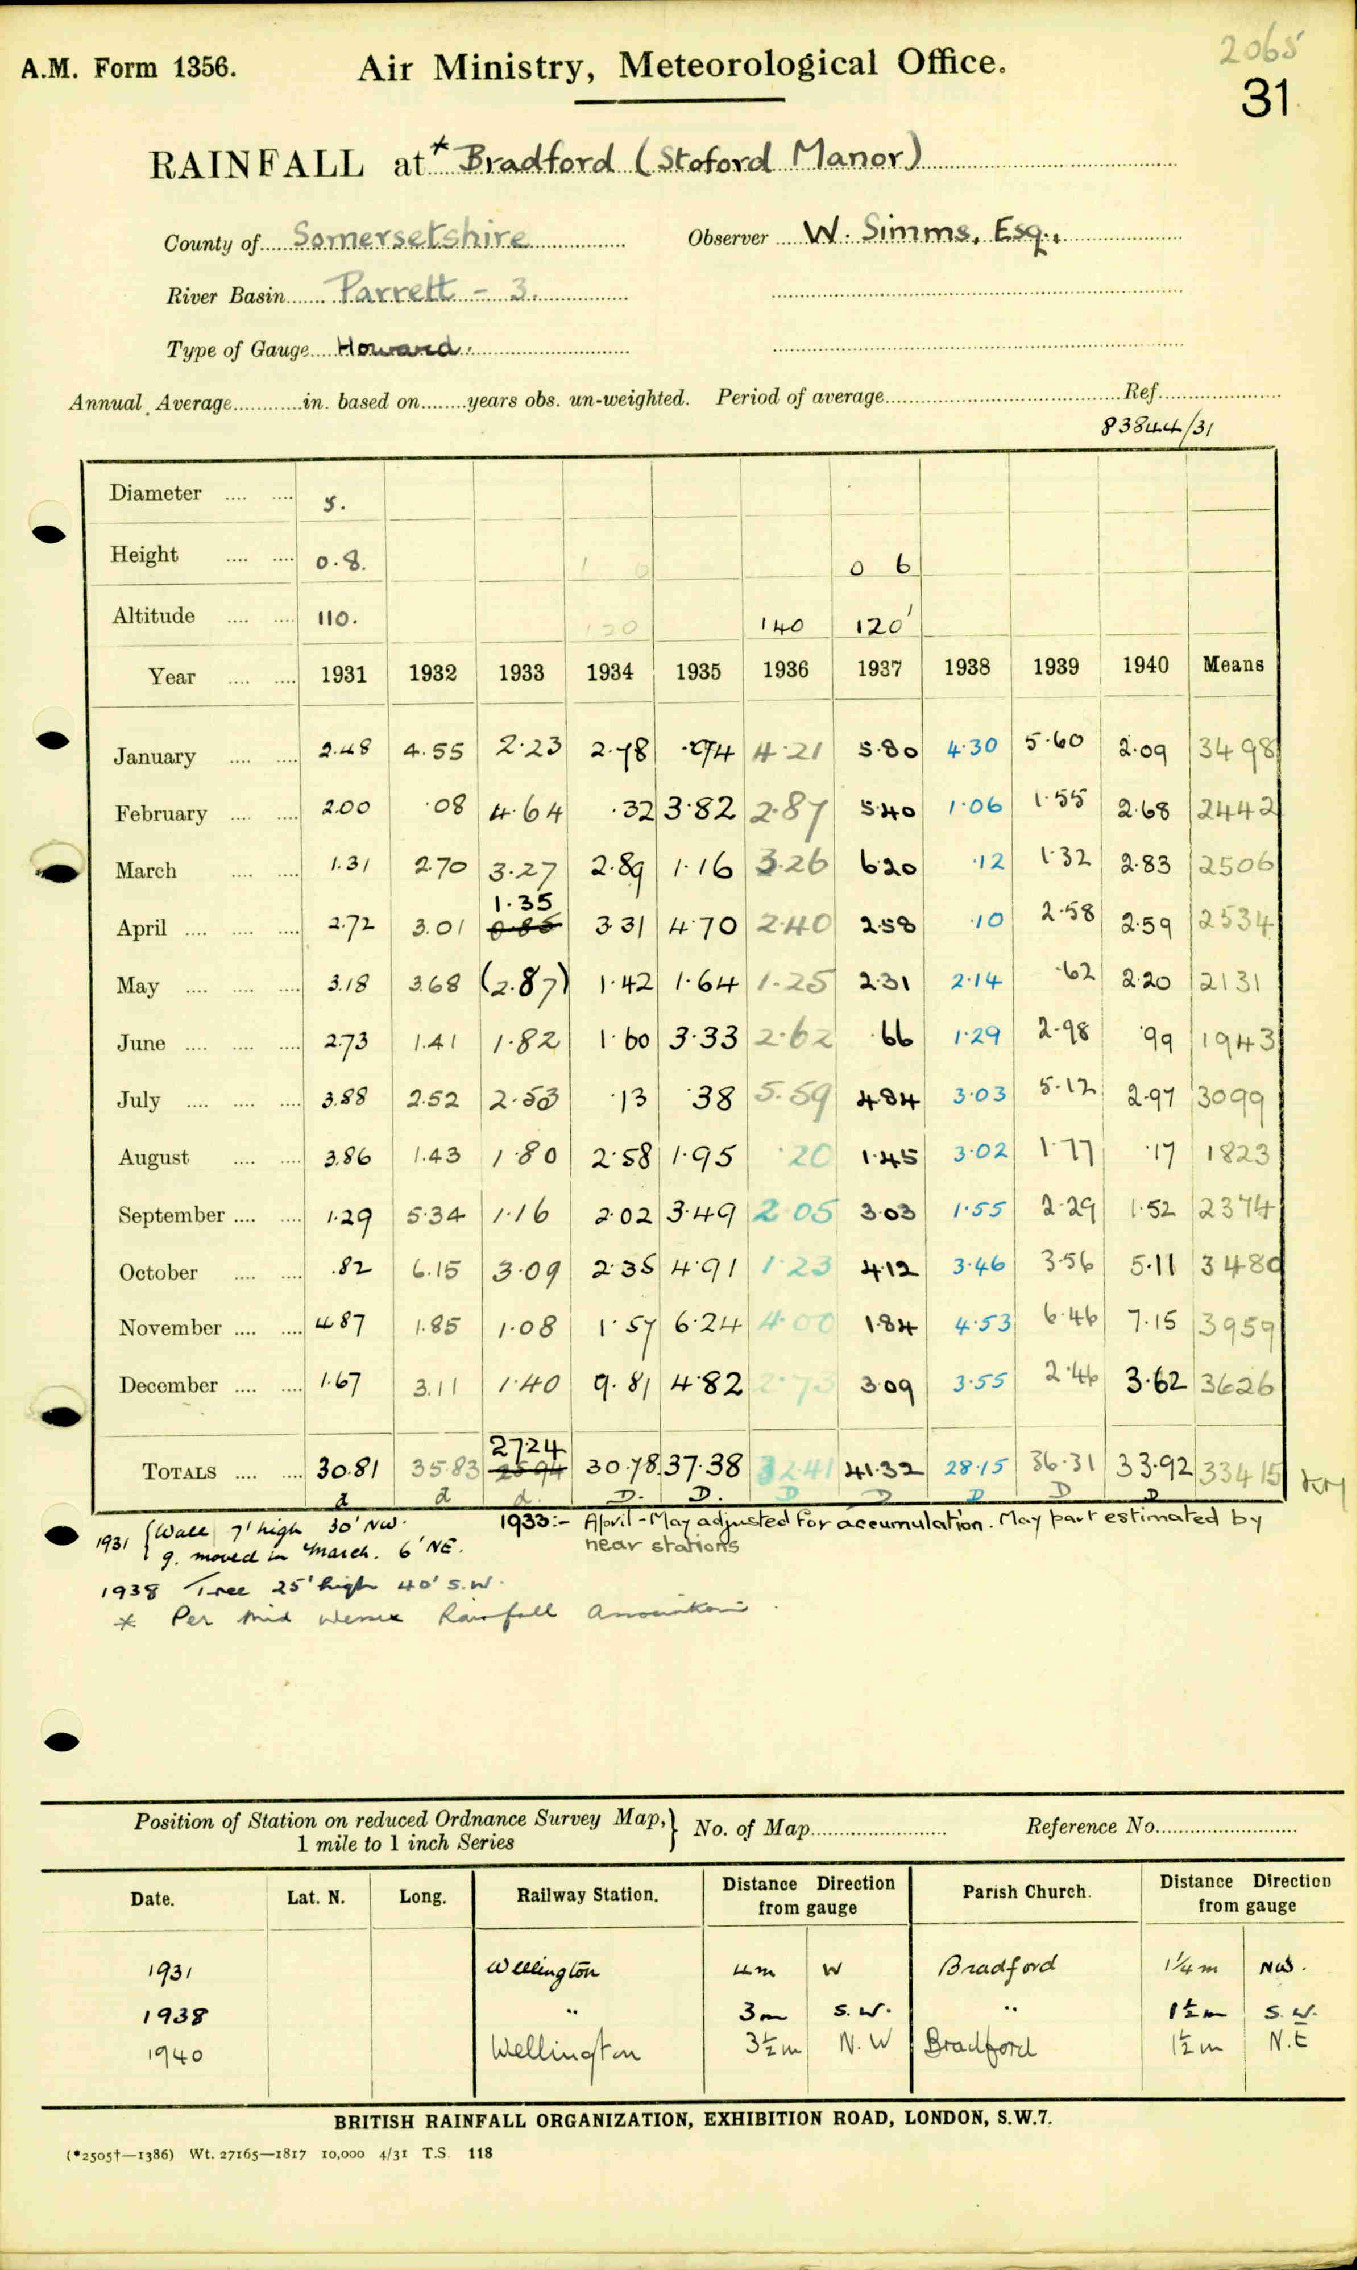 2065
A.M. Form 1356. Air Ministry, Meteorological Office. 31
RAINFALL at * Bradford (Stoford Manor)
County of Somersetshire Observer W. Simms, Esq.,
River Basin Parrett - 3.
Type of Gauge Howard.
Annual Average in. based on years obs. un-weighted. Period of average Ref.
83844/31
Diameter 5.
Height 0.8. 1 0 0 6
Altitude 110. 120 140 120'
Year 1931 1932 1933 1934 1935 1936 1937 1938 1939 1940 Means
January 2.48 4.55 2.23 2.78 .94 4.21 5.80 4.30 5.60 2.09 3498
February 2.00 .08 4.64 .32 3.82 2.87 5.40 1.06 1.55 2.68 2442
March 1.31 2.70 3.27 2.89 1.16 3.26 6.20 .12 1.32 2.83 2506
1.35
April 2.72 3.01 0.85 3.31 4.70 2.40 2.58 .10 2.58 2.59 2534
May 3.18 3.68 (2.87) 1.42 1.64 1.25 2.31 2.14 .62 2.20 2131
June 2.73 1.41 1.82 1.60 3.33 2.62 .66 1.29 2.98 .99 1943
July 3.88 2.52 2.53 .13 .38 5.59 4.84 3.03 5.12 2.97 3099
August 3.86 1.43 1.80 2.58 1.95 .20 1.45 3.02 1.77 .17 1823
September 1.29 5.34 1.16 2.02 3.49 2.05 3.03 1.55 2.29 1.52 2374
October .82 6.15 3.09 2.35 4.91 1.23 4.12 3.46 3.56 5.11 3480
November 4.87 1.85 1.08 1.57 6.24 4.00 1.84 4.53 6.46 7.15 3959
December 1.67 3.11 1.40 9.81 4.82 2.73 3.09 3.55 2.46 3.62 3626
27.24
TOTALS 30.81 35.83 25.94 30.78 37.38 32.41 41.32 28.15 36.31 33.92 33415
d d d. D. D. D D D D D
1931 { Wall 7' high 30' NW. 1933:- April-May adjusted for accumulation. May part estimated by
g. moved in March. 6' NE. near stations
1938 Tree 25' high 40' S.W.
* Per Mid Wessex Rainfall Association.
Position of Station on reduced Ordnance Survey Map, } No. of Map Reference No.
1 mile to 1 inch Series
Date. Lat. N. Long. Railway Station. Distance Direction from gauge Parish Church. Distance Direction from gauge
1931 Wellington 4m W Bradford 1¼m NW.
1938 " 3m S.W. " 1½m S.W.
1940 Wellington 3½m N.W Bradford 1½m N.E
BRITISH RAINFALL ORGANIZATION, EXHIBITION ROAD, LONDON, S.W.7.
(*2505†—1386) Wt. 27165—1817 10,000 4/31 T.S. 118